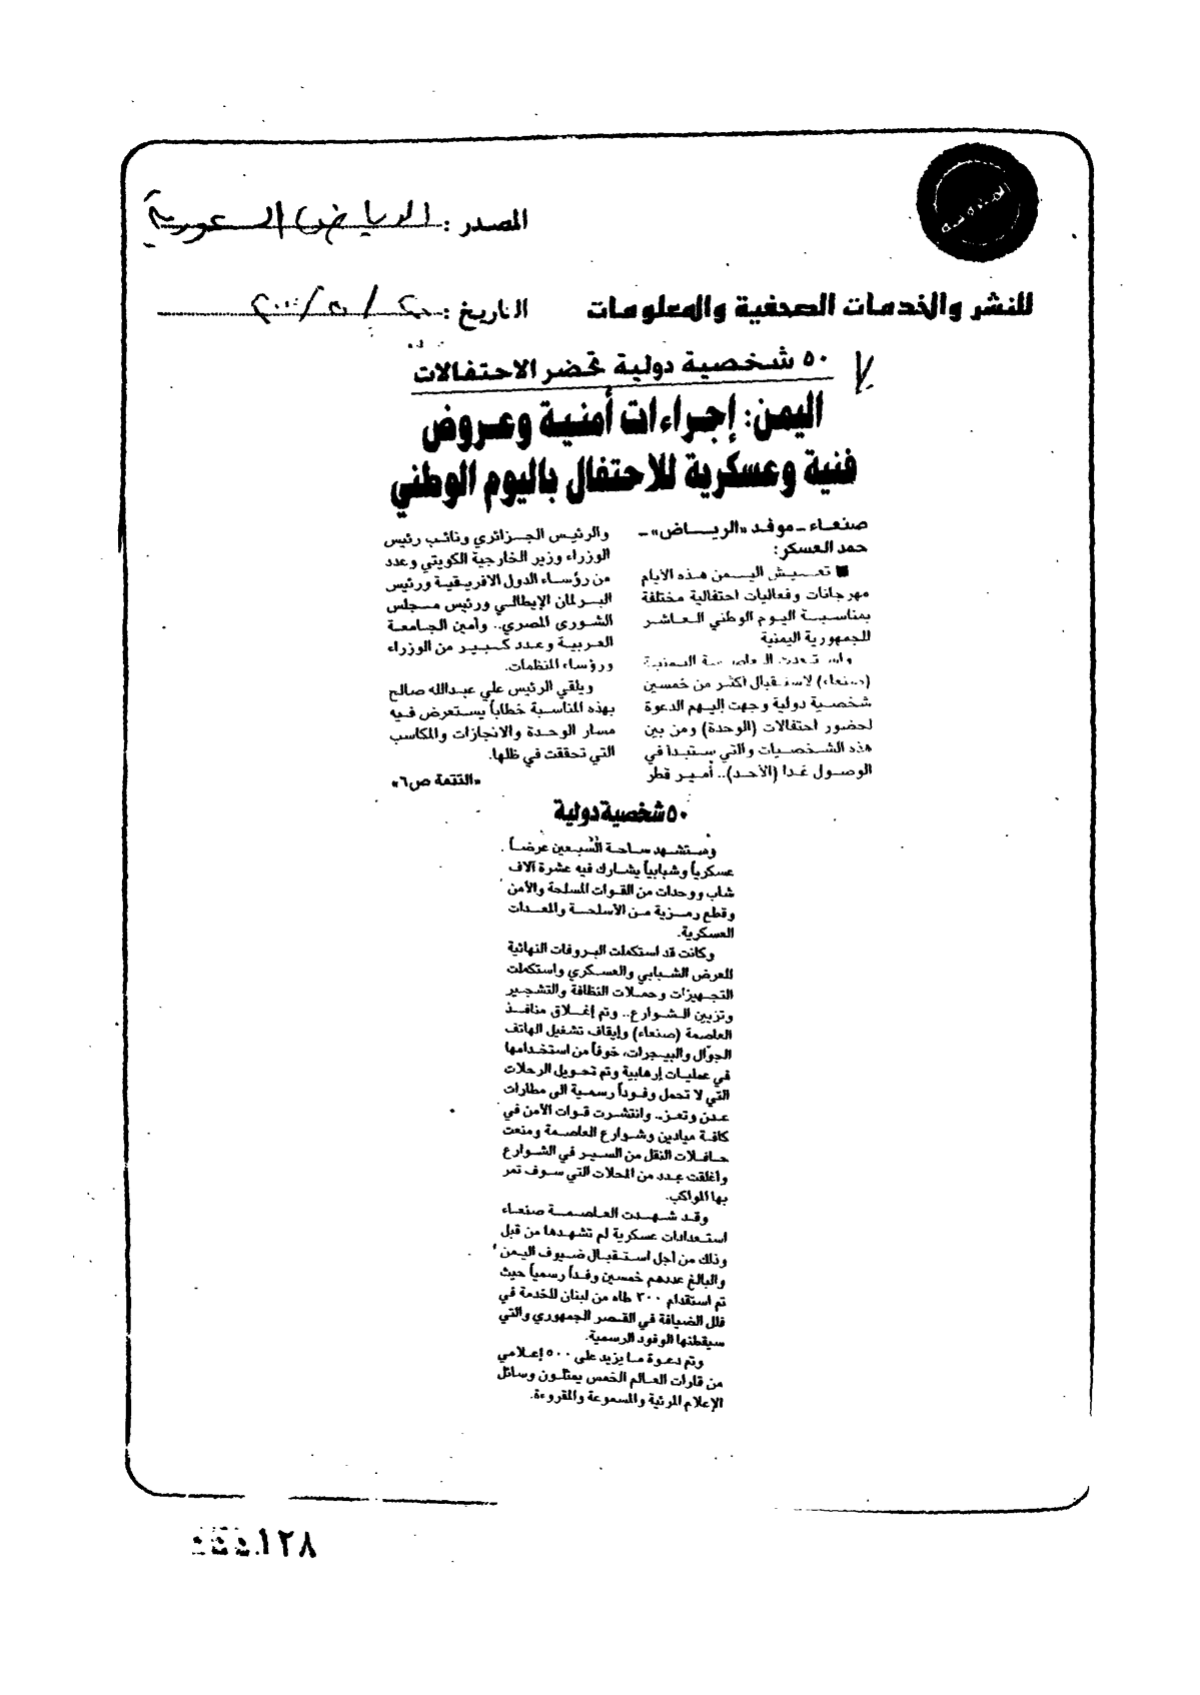 المصدر : الرياض السعودية
للنشر والخدمات الصحفية والمعلومات
التاريخ :
٥٠ شخصية دولية تحضر الاحتفالات
اليمن: إجراءات أمنية وعروض
فنية وعسكرية للاحتفال باليوم الوطني
صنعاء - موفد «الرياض» -
حمد العسكر:
■ تعيش اليمن هذه الأيام
مهرجانات وفعاليات احتفالية مختلفة
بمناسبة اليوم الوطني العاشر
للجمهورية اليمنية
واستعدت العاصمة اليمنية
(صنعاء) لاستقبال أكثر من خمسين
شخصية دولية وجهت إليهم الدعوة
لحضور احتفالات (الوحدة) ومن بين
هذه الشخصيات والتي ستبدأ في
الوصول غدا (الأحد).. أمير قطر
والرئيس الجزائري ونائب رئيس
الوزراء وزير الخارجية الكويتي وعدد
من رؤساء الدول الافريقية ورئيس
البرلمان الإيطالي ورئيس مجلس
الشورى المصري.. وأمين الجامعة
العربية وعدد كبير من الوزراء
ورؤساء المنظمات.
ويلقي الرئيس علي عبدالله صالح
بهذه المناسبة خطاباً يستعرض فيه
مسار الوحدة والانجازات والمكاسب
التي تحققت في ظلها.
«التتمة ص٦»
٥٠ شخصية دولية
وستشهد ساحة السبعين عرضاً
عسكرياً وشبابياً يشارك فيه عشرة آلاف
شاب ووحدات من القوات المسلحة والأمن
وقطع رمزية من الأسلحة والمعدات
العسكرية.
وكانت قد استكملت البروفات النهائية
للعرض الشبابي والعسكري واستكملت
التجهيزات وحملات النظافة والتشجير
وتزيين الشوارع.. وتم إغلاق منافذ
العاصمة (صنعاء) وإيقاف تشغيل الهاتف
الجوّال والبيجرات، خوفاً من استخدامها
في عمليات إرهابية وتم تحويل الرحلات
التي لا تحمل وفوداً رسمية الى مطارات
عدن وتعز.. وانتشرت قوات الأمن في
كافة ميادين وشوارع العاصمة ومنعت
حافلات النقل من السير في الشوارع
وأغلقت عدد من المحلات التي سوف تمر
بها المواكب.
وقد شهدت العاصمة صنعاء
استعدادات عسكرية لم تشهدها من قبل
وذلك من أجل استقبال ضيوف اليمن
والبالغ عددهم خمسين وفداً رسمياً حيث
تم استقدام ٣٠٠ طاه من لبنان للخدمة في
فلل الضيافة في القصر الجمهوري والتي
سيقطنها الوفود الرسمية.
وتم دعوة ما يزيد على ٥٠٠ إعلامي
من قارات العالم الخمس يمثلون وسائل
الإعلام المرئية والمسموعة والمقروءة.
١٢٨